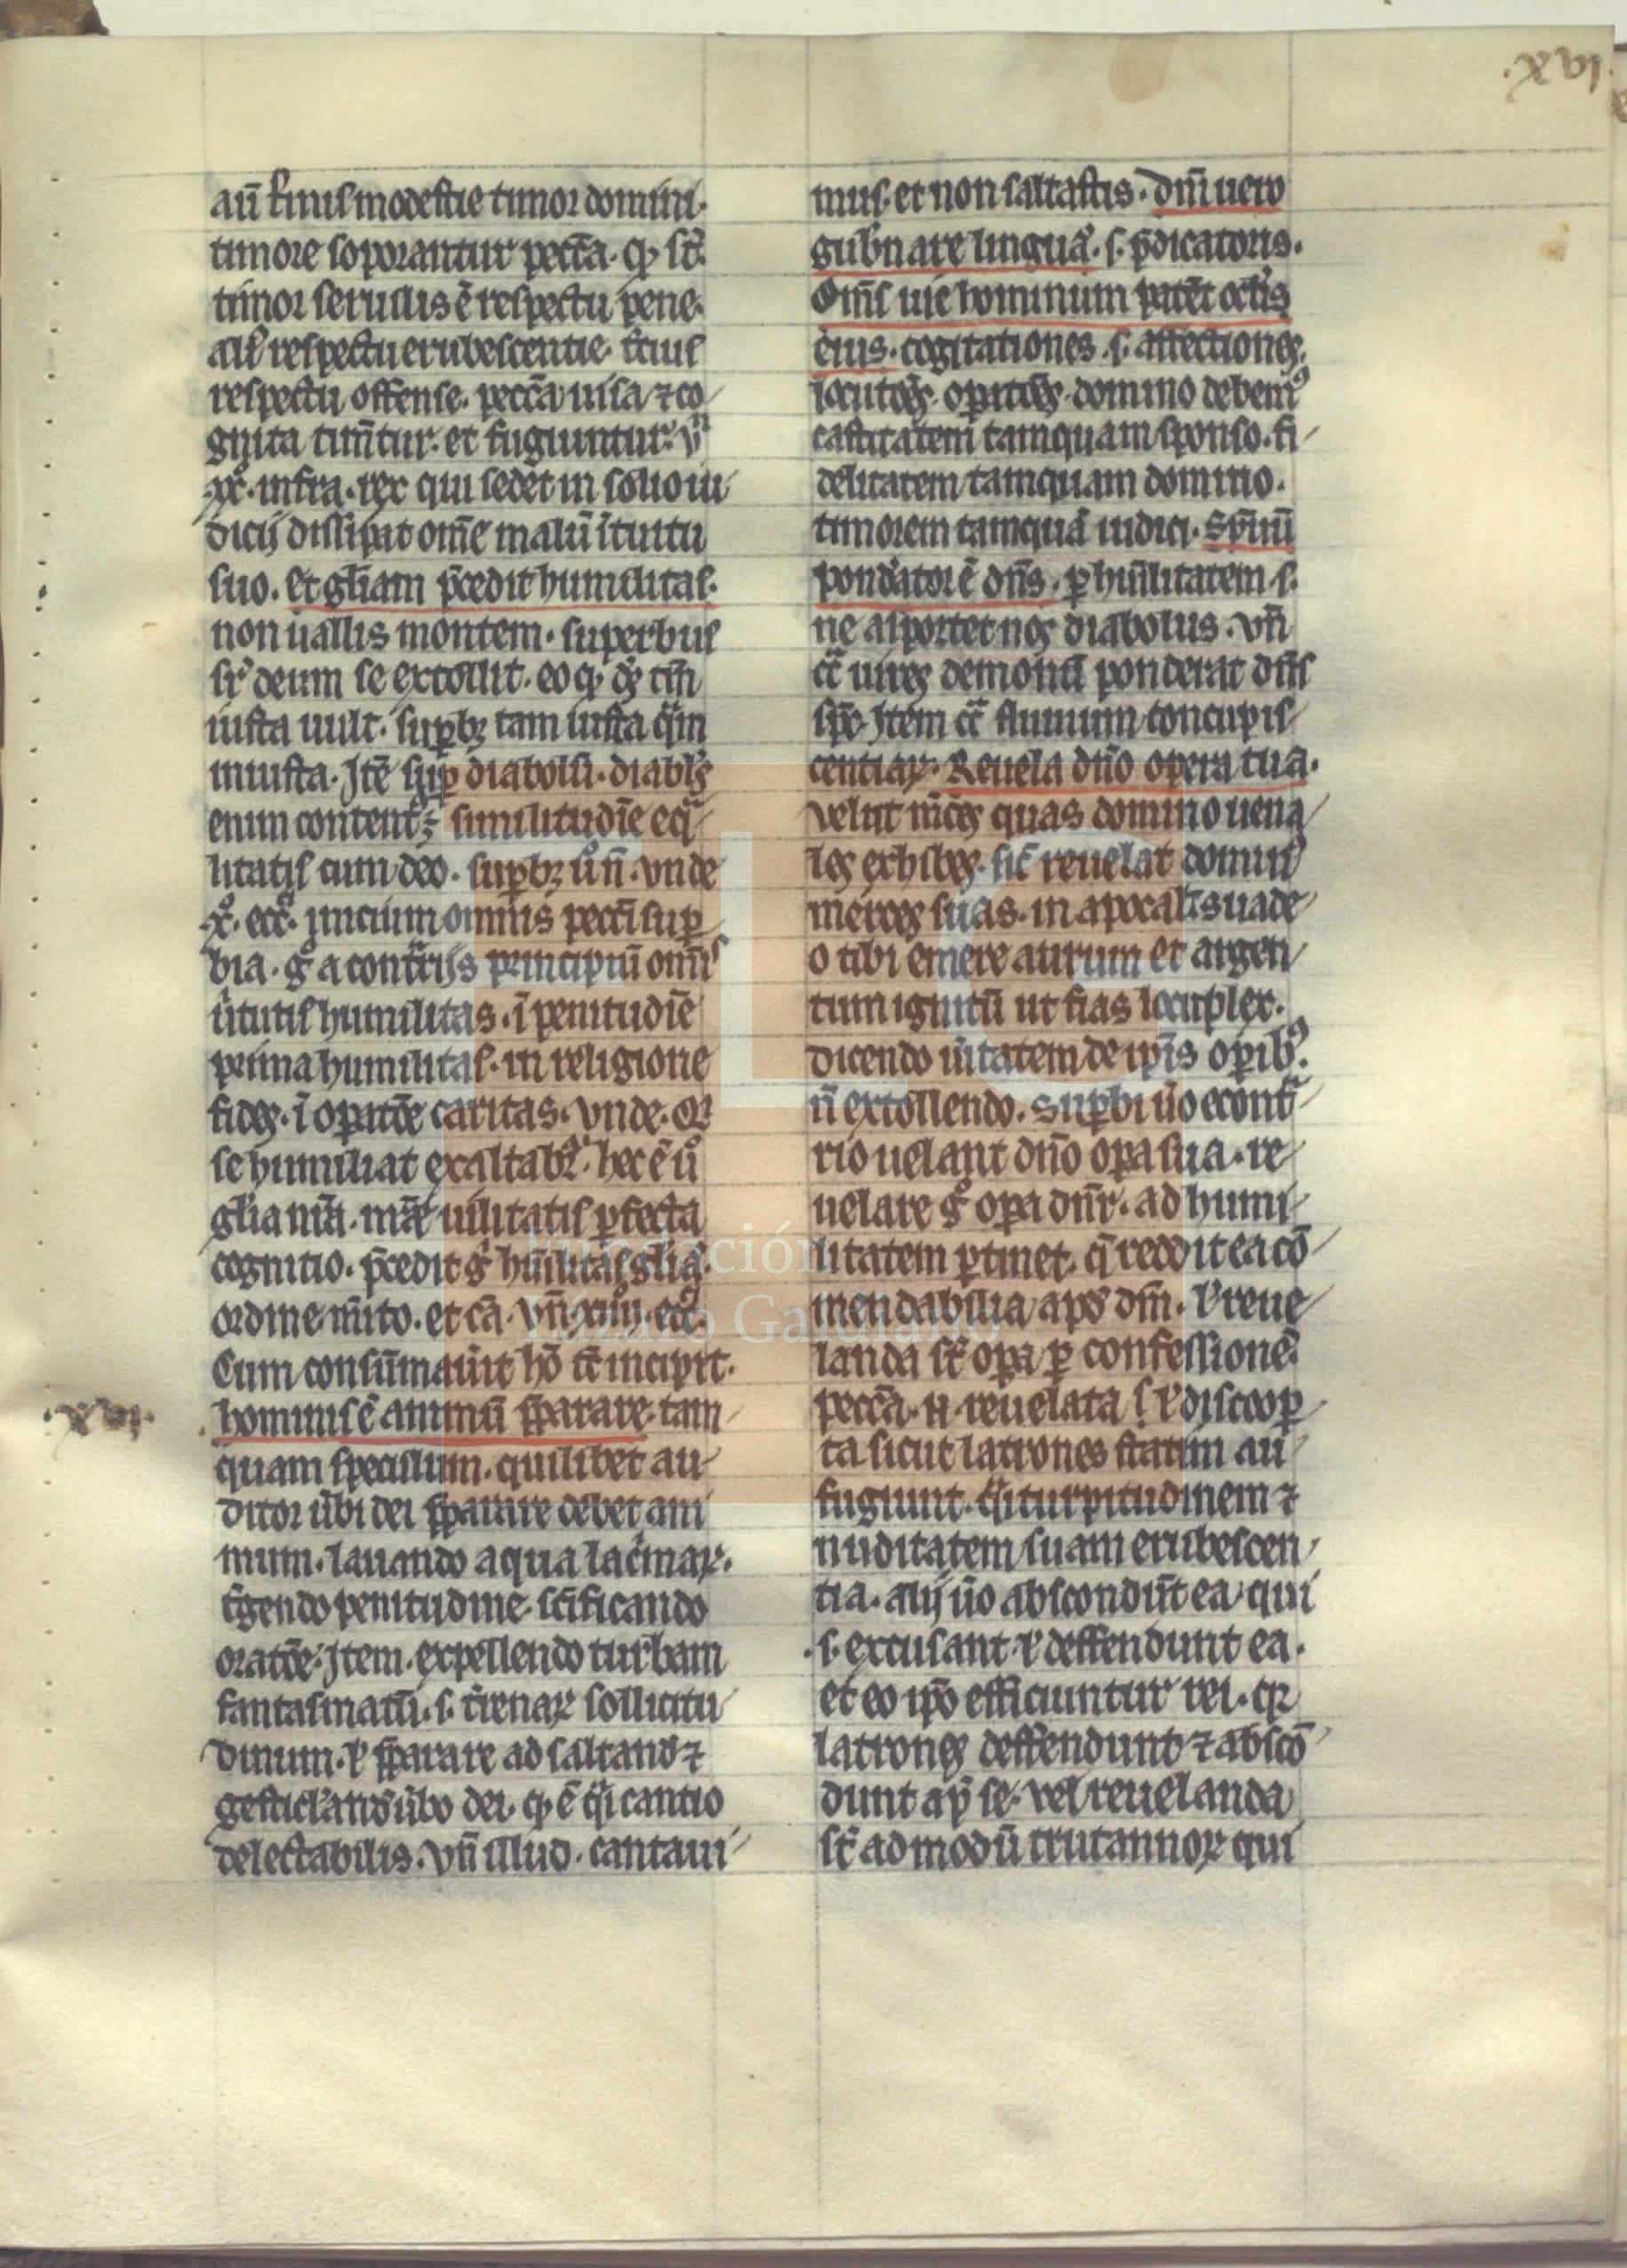 .xvi.
aū t̄mīus modestie timor domini.
timore soporantur pecc̄a. q̇ sc̄.
timor seruilis ē respectu pene.
ali᷒ respectu erubescentie. t̄cius
respectu offense. pecc̄a uisa ⁊ co
gnita tim̄tur. et fugiuntur. vn̄
.xx̊. infra. rex qui sedet in solio iu
dicij dissipat om̄e malū ītuitu
suo. Et gl̄iam p̄cedit humilitas.
non uallis montem. superbus
sr̄ deum se extollit. eo q̇ d̄s tm̄
iusta uult. sup̱bꝫ tam iusta qm̄
iniusta. Itē sup̱ diabolū. diabl̄s
enim content᷒ ē similitudīe eq̄
litatis cum deo. sup̱bꝫ ū n̄. vnde
.x̊. ecc̄. inicium omnis pecc̄i sup̱
bia. g̊ a cont̄rijs principiū om̄is
ūtutis humilitas. ī penitudīe
prima humilitas. in religione
fides. ī op̱atōe caritas. vnde. Qi
se humiliat exaltabr̄. hec ē ū
gl̄ia nr̄a. nr̄e uilitatis p̱fecta
cognitio. p̄cedit g̊ hūilitas gl̄iā.
ordine m̄ito. et cā. vn̄. xviij. ecc̄.
Cum consūmauīt hō tc̄ incipit.
.xvi.
hominis ē animū p̄parare. tam
quam speculum. quilibet au
ditor ūbi dei p̄parare debet ani
mum. lauando aqua lac̄maꝝ.
t̄gendo penitudine. sc̄ificando
oratōe. Item. expellendo turbam
fantasmatū. s. t̄renaꝝ sollicitu
dinum. ł p̄parare ad saltand᷒ ⁊
gesticl̄and᷒ ūbo dei. q̇ ē q̄i cantio
delectabilis. vn̄ illud. cantaui
mus. et non saltastis. dn̄i uero
gub̄nare linguā. s. p̄dicatoris.
Om̄s uie hominum patēt ocl̄is
eius. cogitationes. s. affectiones.
locutōes. op̱atōes. domino debem᷒
castitatem tamquam sponso. fi
delitatem tamquam domino.
timorem tamquā iudici. Sp̄uū
pond̄ator ē dn̄s. p̱ hūilitatem. s.
ne asportet nos diabolus. vn̄
ct̄ uires demonū ponderat dn̄s
sp̄c. Item ct̄ fluuium concupis
centiaꝝ. Reuela dn̄o opera tua.
velut m̄ces quas domino uena
les exhibes. sic̄ reuelat domin᷒
merces suas. in apocal̄. suade
o tibi emere aurum et argen
tum ignitū ut fias locuplex.
dicendo ūitatem de ip̄is op̱ib᷒.
n̄ extollendo. Sup̱bi ūo econt̄
rio uelant dn̄o op̱a sua. re
uelare g̊ op̱a dn̄r. ad humi
litatem p̱tinet. q̄ reddit ea cō
mendabilia apd̄ dm̄. ł reue
landa sc̄ op̱a p̱ confessionē.
pecc̄a. n̄. reuelata s. ł discoop̱
ta sicut latrones statim au
fugiunt. q̄i turpitudinem ⁊
nuditatem suam erubescen
tia. alij ūo abscondūt ea. qui
.s. excusant ł deffendunt ea.
et eo ip̄o efficiuntur rei. qꝛ
latrones deffendunt ⁊ abscō
dunt ap̱ se. vel reuelanda
sc̄ ad modū trutannoꝝ qui